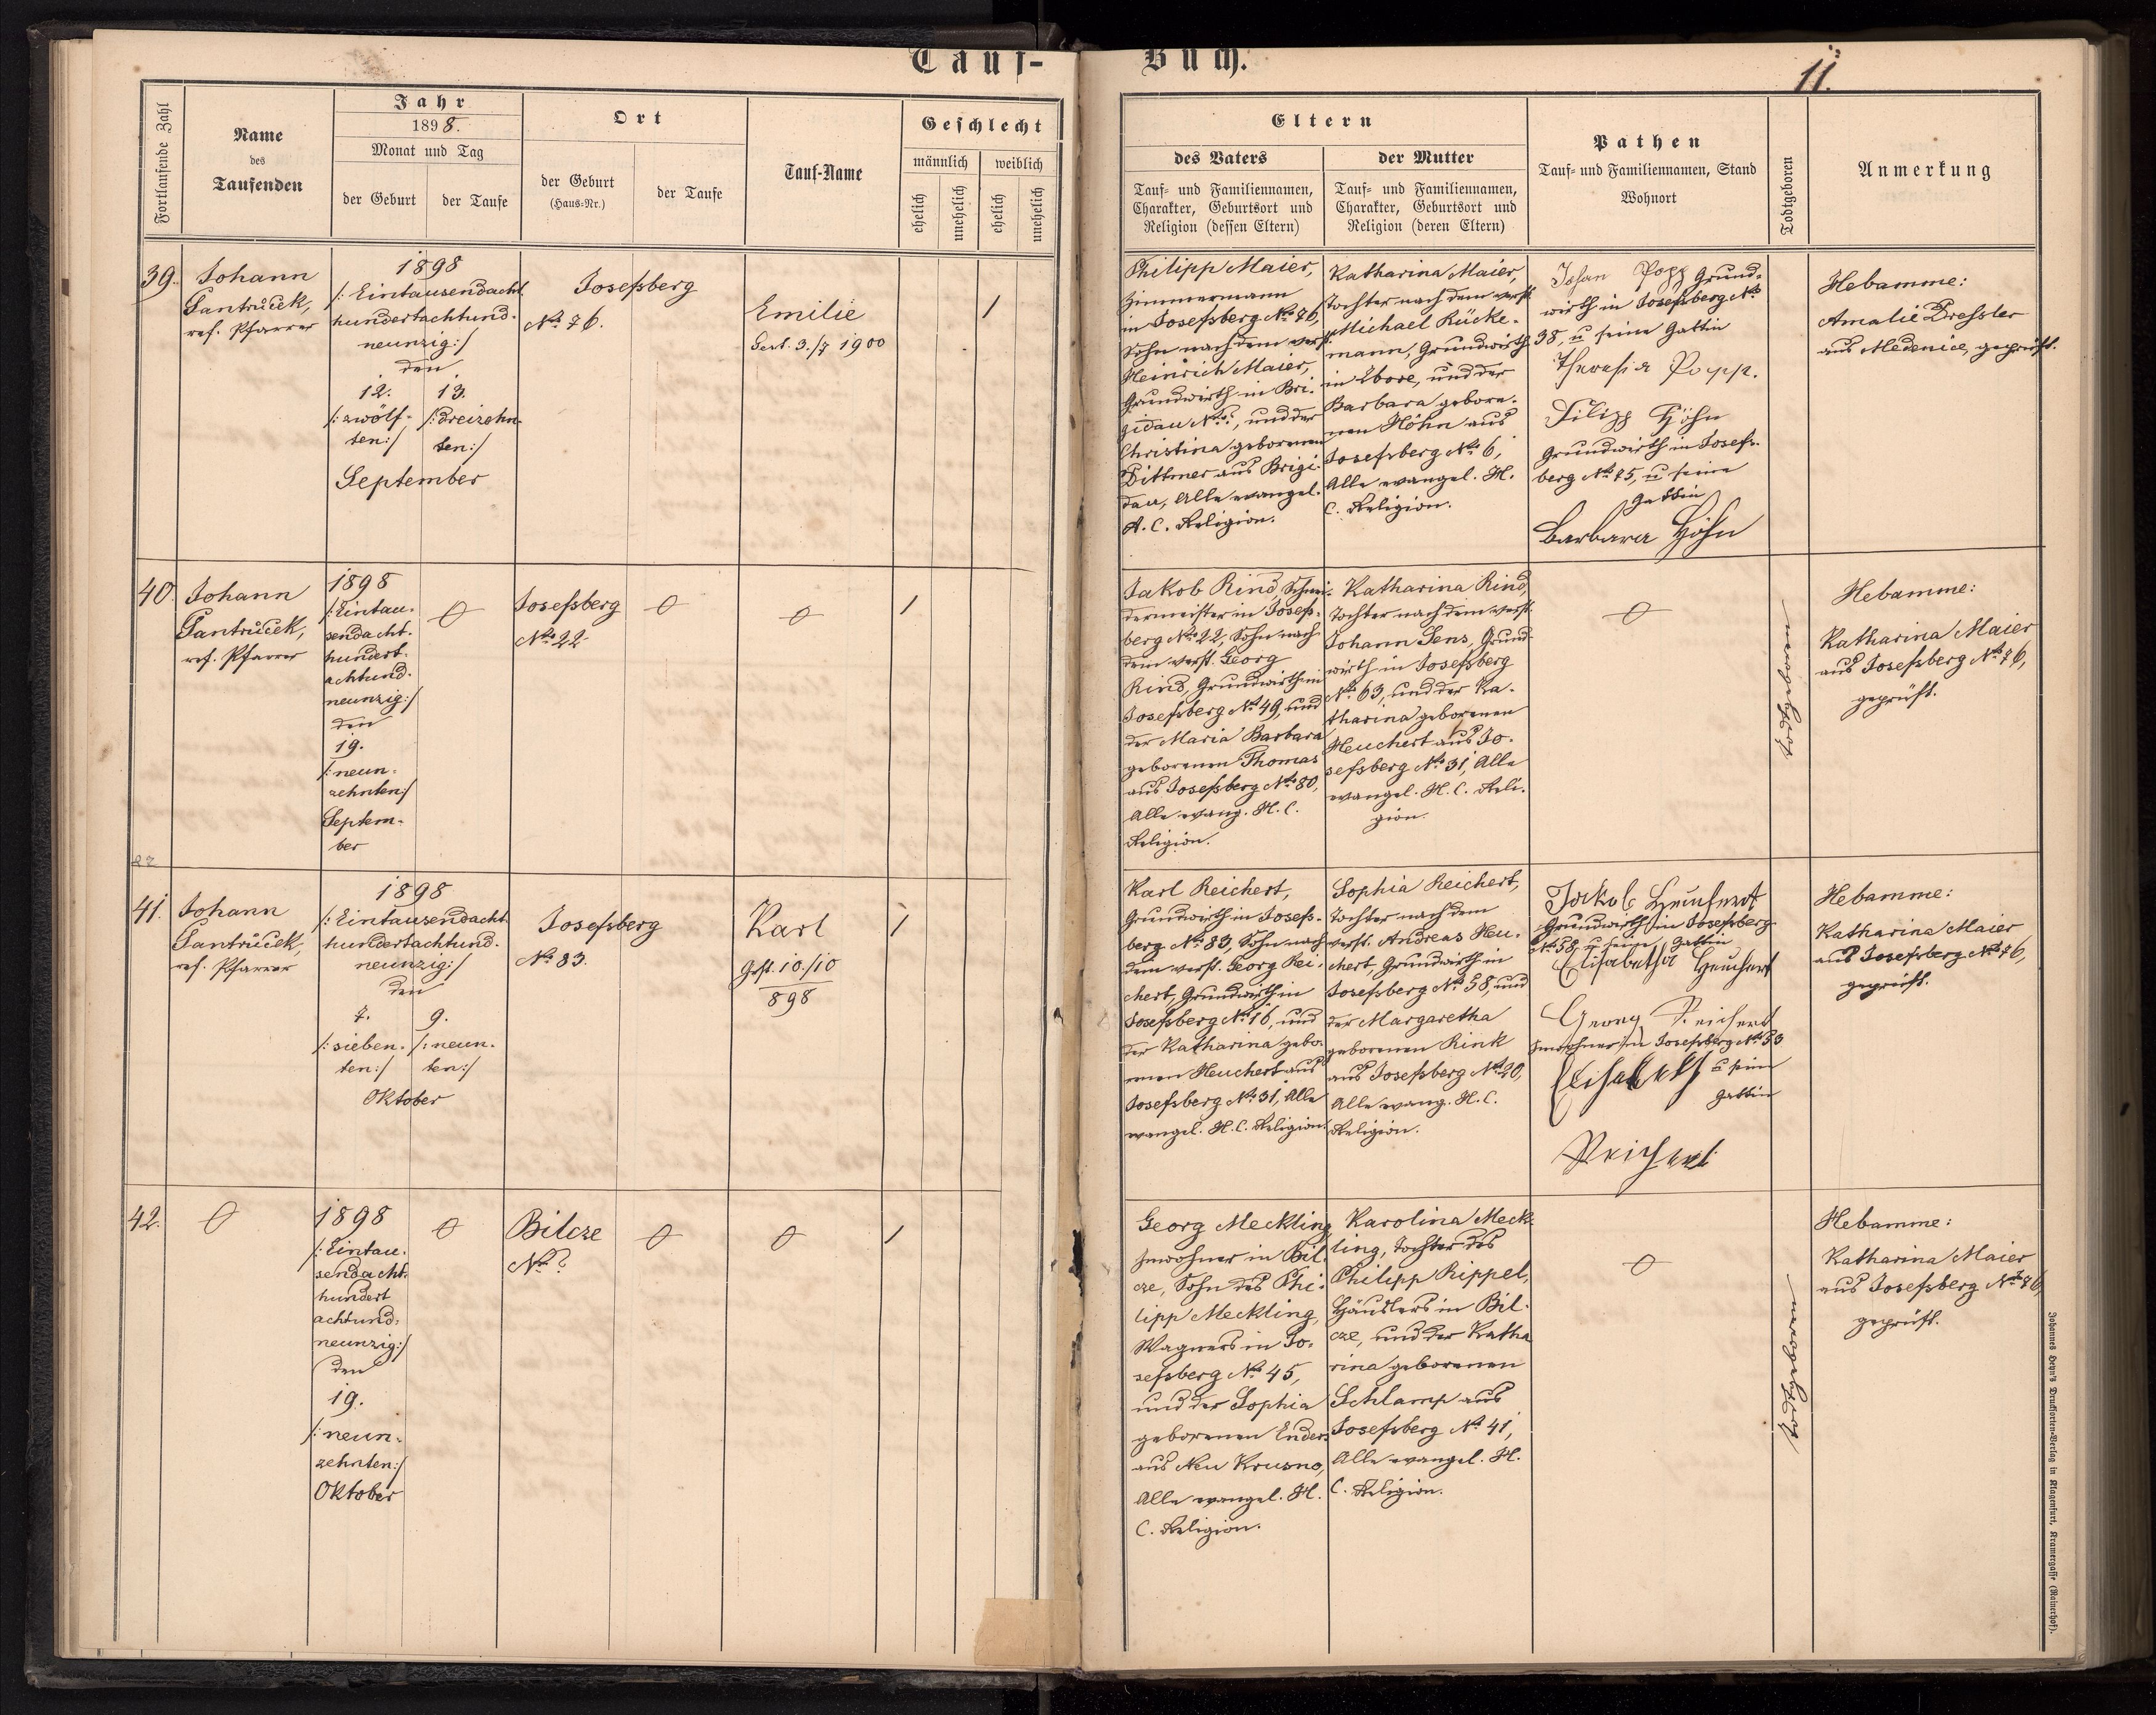 Tauf-
Buch.
11.
Fortlaufende Zahl
Name
des
Taufenden
Jahr
1898.
Monat und Tag
der Geburt
der Taufe
Ort
der Geburt
(Haus-Nr.)
der Taufe
Tauf-Name
Geschlecht
männlich
weiblich
ehelich
unehelich
ehelich
unehelich
Eltern
des Vaters
Tauf- und Familiennamen,
Charakter, Geburtsort und
Religion (dessen Eltern)
der Mutter
Tauf- und Familiennamen,
Charakter, Geburtsort und
Religion (deren Eltern)
Pathen
Tauf- und Familiennamen, Stand
Wohnort
Todtgeboren
Anmerkung
39.
Johann
Jantrůček,
ref. Pfarrer
1898
/: Eintausendacht
hundertachtund-
neunzig :/
den
12.
/: zwölf-
ten :/
13.
/: dreizehn-
ten :/
September
Josefsberg
No 76.
Emilie
Gest. 3./7 1900
/
Philipp Maier,
Zimmermann
in Josefsberg No 76,
Sohn nach dem verst.
Heinrich Maier,
Grundwirth in Bri-
gidau No ?, und der
Christina geborenen
Dittmer aus Brigi-
dau, Alle evangel.
A. C. Religion.
Katharina Maier,
Tochter nach dem verst.
Michael Rücke-
mann, Grundwirth
in Ebore, und der
Barbara gebore-
nen Höhn aus
Josefsberg No 6,
Alle evangel. H.
C. Religion.
Johan Popp Grund-
wirth in Josefsberg No
38, u seine Gattin
Theresia Popp.
Filipp Höhn
Grundwirth in Josefs-
berg No 75, u seine
Gattin
Barbara Höhn
Hebamme:
Amalie Dressler
aus Medenice, geprüft.
40.
Johann
Jantrůček,
ref. Pfarrer
1898
/: Eintau-
sendacht-
hundert-
achtund-
neunzig :/
den
19.
/: neun-
zehnten :/
Septem-
ber
0
Josefsberg
No 22
0
0
/
Jakob Rind, Schnei-
dermeister in Josefs-
berg No 22, Sohn nach
dem verst. Georg
Rind, Grundwirth in
Josefsberg No 49, und
der Maria Barbara
geborenen Thomas
aus Josefsberg No 80,
Alle evang. H. C.
Religion.
Katharina Rind,
Tochter nach dem verst.
Johann Sens, Grund-
wirth in Josefsberg
No 63, und der Ka-
tharina geborenen
Heuchert aus Jo-
sefsberg No 31, Alle
evangel. H. C. Reli-
gion.
0
todtgeboren
Hebamme:
Katharina Maier
aus Josefsberg No 76,
geprüft.
41.
Johann
Jantrůček,
ref. Pfarrer
1898
/: Eintausendacht-
hundertachtund-
neunzig :/
den
7.
/: sieben-
ten :/
9.
/: neun-
ten :/
Oktober
Josefsberg
No 83.
Karl
Gest. 10./10
898
/
Karl Reichert,
Grundwirth in Josefs-
berg No 83, Sohn nach
dem verst. Georg Rei-
chert, Grundwirth in
Josefsberg No 16, und
der Katharina gebo-
renen Heuchert aus
Josefsberg No 31, Alle
evangel. H. C. Religion.
Sophia Reichert,
Tochter nach dem
verst. Andreas Heu-
chert, Grundwirth in
Josefsberg No 58, und
der Margaretha
geborenen Rink
aus Josefsberg No 20,
Alle evang. H. C.
Religion.
Jakob Heuchert
Grundwirth in Josefsberg
No 58 u seine Gattin
Elisabetha Heuchert
Georg Reichert
Inwohner in Josefsberg No 53
Elisabeth u seine
Gattin
Reichert
Hebamme:
Katharina Maier
aus Josefsberg No 76,
geprüft.
42.
0
1898
/: Eintau-
sendacht-
hundert
achtund-
neunzig :/
den
19.
/: neun-
zehnten :/
Oktober
0
Bilcze
No ?
0
0
/
Georg Meckling
Inwohner in Bil-
cze, Sohn des Phi-
lipp Meckling,
Wagners in Jo-
sefsberg No 45,
und der Sophia
geborenen Enders
aus Neu Krusno,
Alle evangel. H.
C. Religion.
Karolina Meck-
ling, Tochter des
Philipp Rippel,
Häuslers in Bil-
cze, und der Katha
rina geborenen
Schlamp aus
Josefsberg No 41,
Alle evangel. H.
C. Religion.
0
todtgeboren
Hebamme:
Katharina Maier
aus Josefsberg No 76,
geprüft.
Johannes Heyn's Drucksorten-Verlag in Klagenfurt, Kramergasse (Rainerhof).